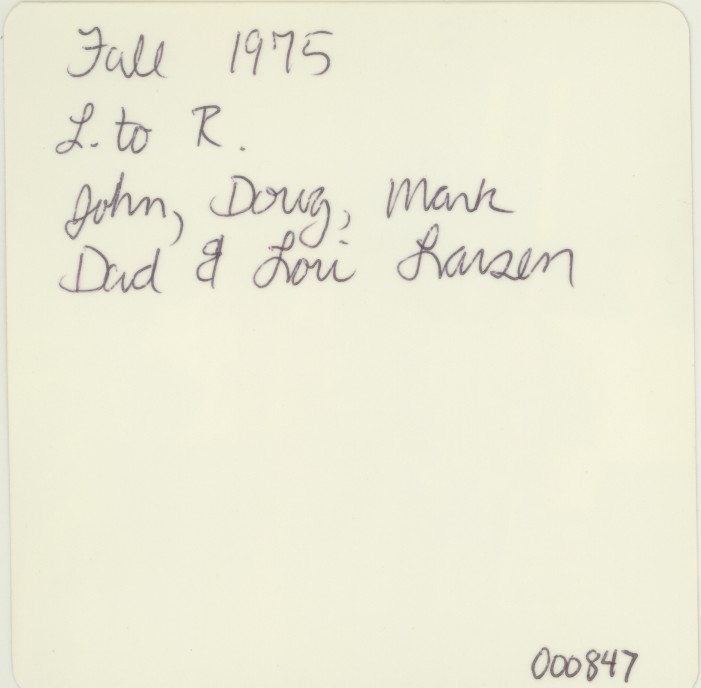 Fall 1975
L. to R.
John, Doug, Mark
Dad & Lori Larsen
000847